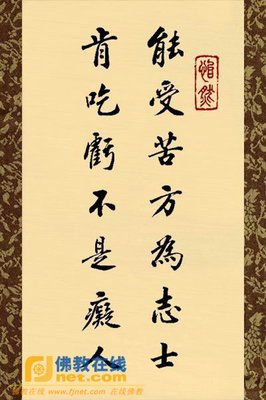 能受苦方為志士
肯吃虧不是癡人
佛教在线
fjnet.com
佛教在线 www.fjnet.com 在线佛教